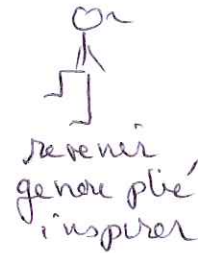 revenir
genou plié,
inspirer